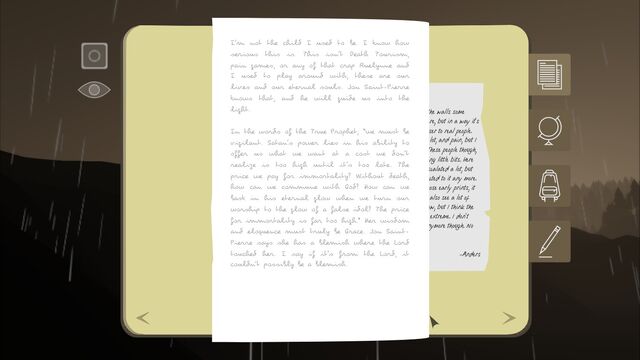 I'm not the child I used to be. I know how
serious this is. This isn't Death Tourism,
pain games, or any of that crap Avelynne and
I used to play around with, these are our
lives and our eternal souls. Jou Saint-Pierre
knows that, and he will guide us into the
light.
In the words of the True Prophet, "we must be
vigilant. Satan's power lies in his ability to
offer us what we want at a cost we don't
realize is too high until it's too late. The
price we pay for immortality? Without death,
how can we commune with God? How can we
bask in his eternal glow when we turn our
worship to the glow of a false idol? The price
for immortality is far too high." Her wisdom
and eloquence must truly be Grace. Jou Saint-
Pierre says she has a blemish where the Lord
touched her. I say if it's from the Lord, it
couldn't possibly be a blemish.
the walls some
but in a way it's
to real people.
and pain, but I
These people though,
little bits. Here
a lot, but
to it any more.
early prints, it
also see a lot of
but I think the
extreme. I don't
anymore though. No
-Anders